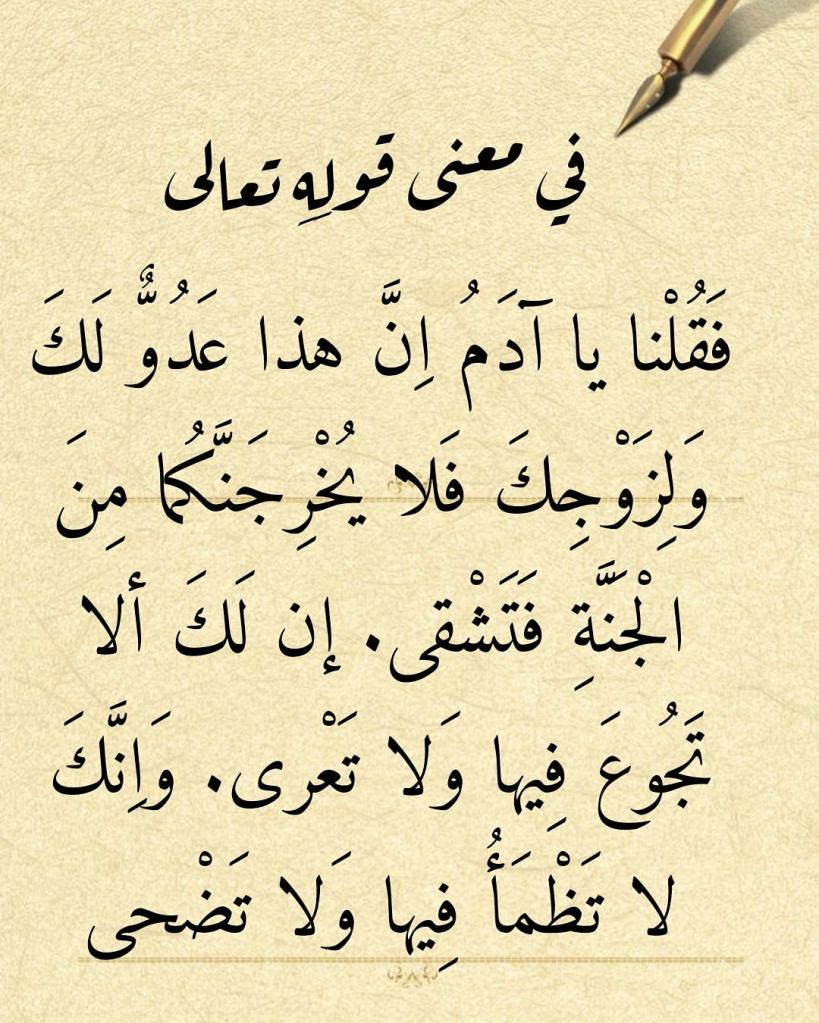 في معنى قولِهِ تعالى
فَقُلْنا يا آدَمُ اِنَّ هذا عَدُوٌّ لَكَ
وَلِزَوْجِكَ فَلا يُخْرِجَنَّكُما مِنَ
الْجَنَّةِ فَتَشْقى. إن لَكَ ألا
تَجُوعَ فِيها وَلا تَعْرى. وَاِنَّكَ
لا تَظْمَأُ فِيها وَلا تَضْحى